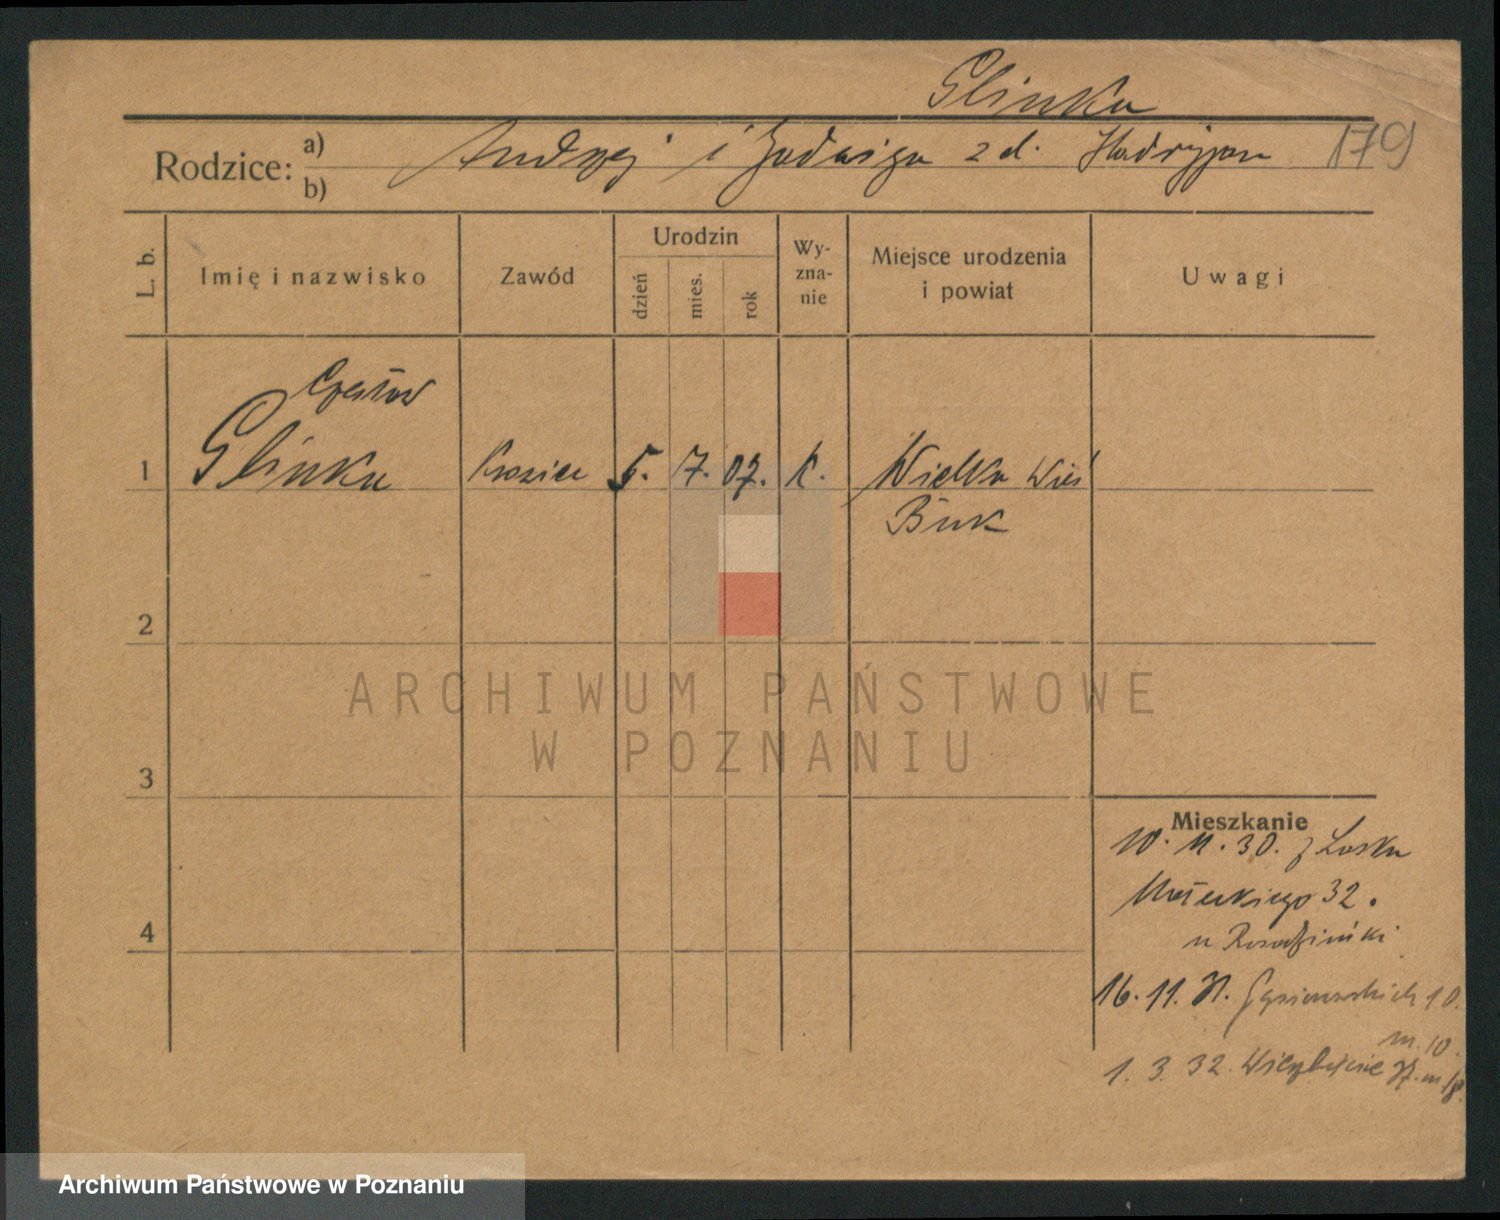 Glinka
Rodzice: a) b) Andrzej i Jadwiga z d. 179
L. b. Imię i nazwisko Zawód Urodzin dzień mies. rok Wy-zna-nie Miejsce urodzenia i powiat Uwagi
Czesław
1 Glinka 5. 7. 07. k. Wielka Wieś
Buk
2
3
4
Mieszkanie
10. 11. 30. z Łaska
Małeckiego 32.
u
16. 11. 31. Gąsiorowskich 10.
m. 10.
1. 3. 32. Wierzbięcice 37. m. 18.
ARCHIWUM PAŃSTWOWE
W POZNANIU
Archiwum Państwowe w Poznaniu